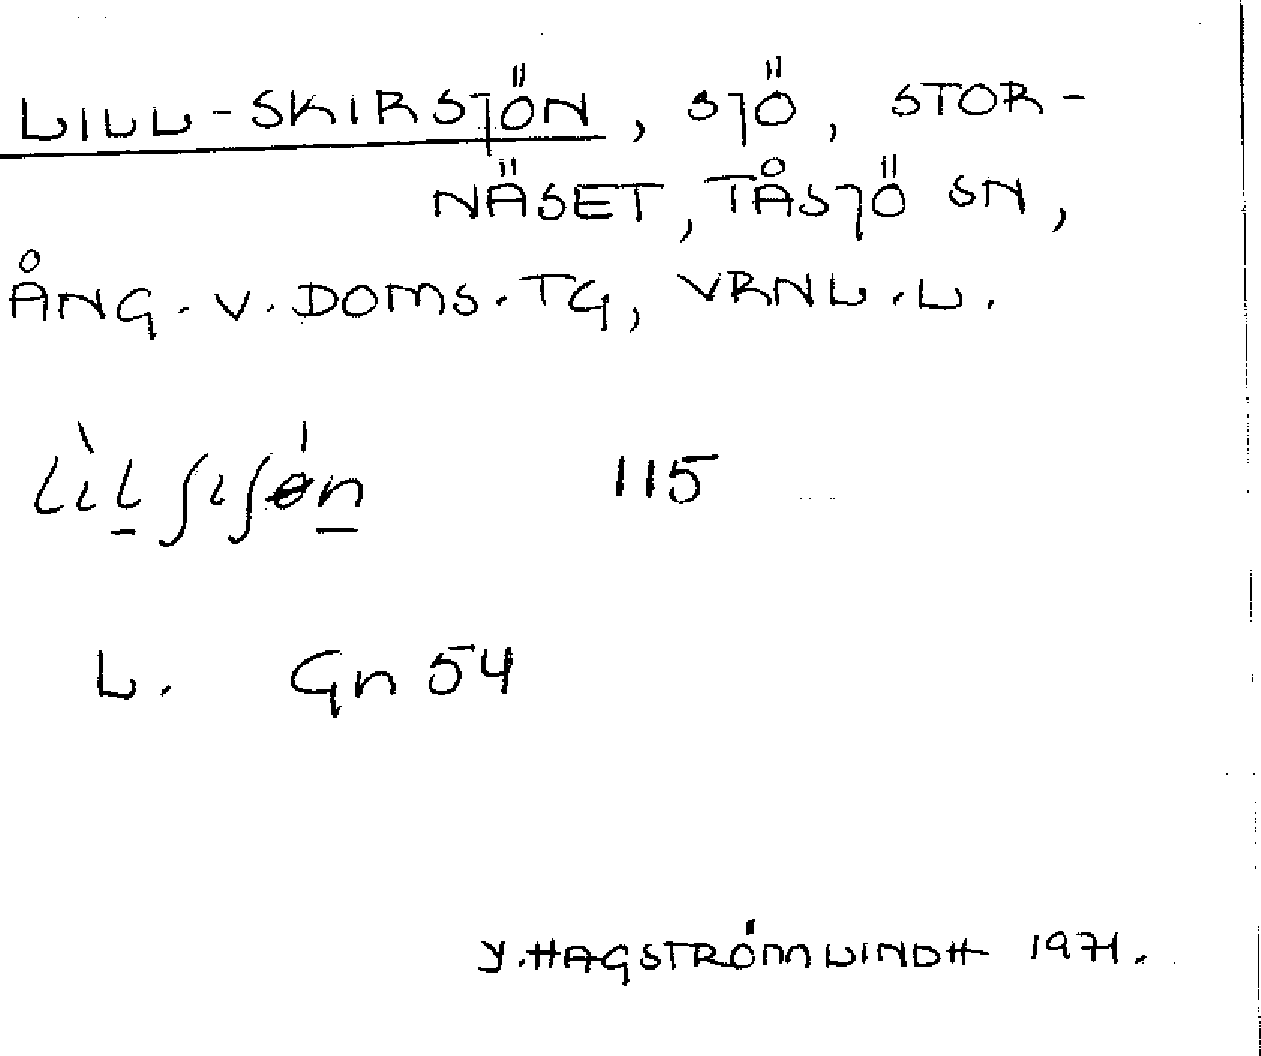 LILL-SKIRSJÖN, SJÖ, STOR-
NÄSET, TÅSJÖ SN,
ÅNG. V. DOMS. TG, VRNL. L.
lìlʃiʃɵ́n 115
L. Gn 54
Y. HAGSTRÖM LINDH 1971.